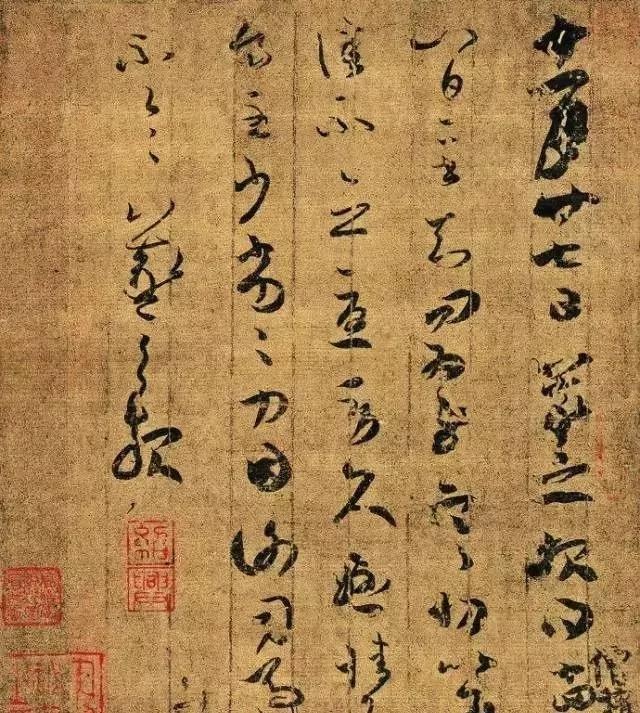 十一月廿七日羲之報得十四
八日二書知問為慰寒切比各
佳不念憂勞久懸情
食甚少劣劣力因謝司馬
不一一羲之報
紹興